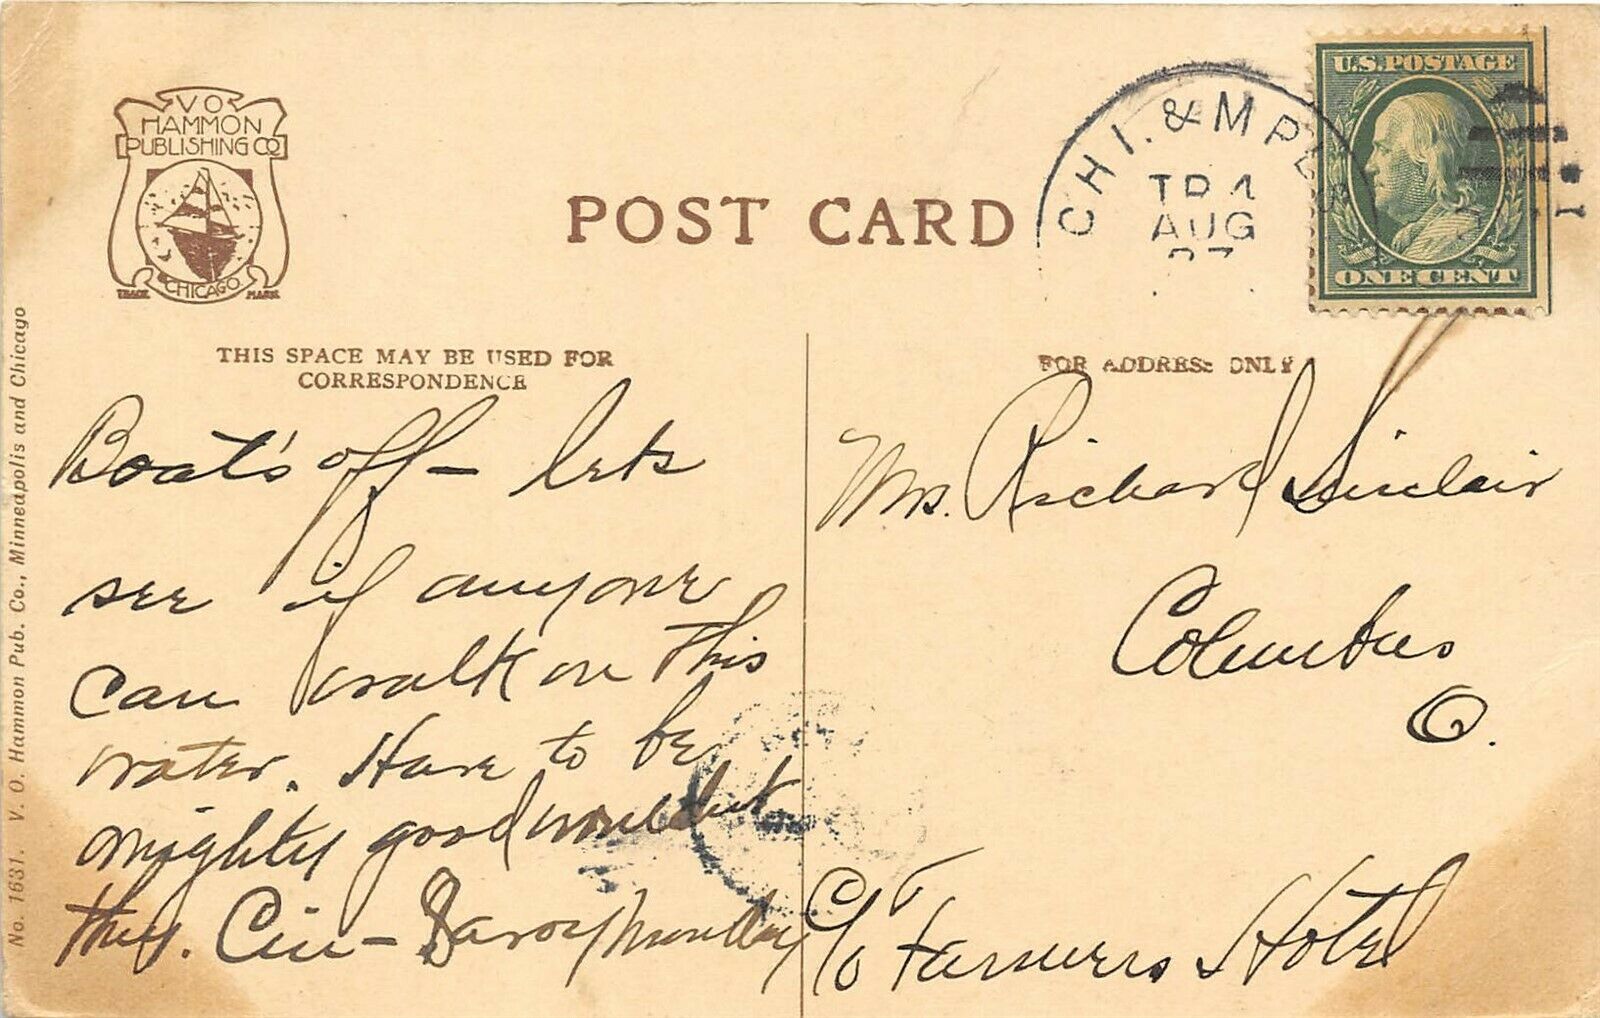 V O
HAMMON
PUBLISHING CO
CHICAGO
TRADE MARK
POST CARD
CHI. & MPLS
TR 4
AUG
27
U.S. POSTAGE
ONE CENT
THIS SPACE MAY BE USED FOR
CORRESPONDENCE
FOR ADDRESS ONLY
No. 1631. V. O. Hammon Pub. Co., Minneapolis and Chicago
Boat's off - lets
see if anyone
can walk on this
water. Have to be
mighty good wouldnt
they. Cin - Monday
Mrs. Richard Sinclair
Columbus
O.
C/o Farmers Hotel